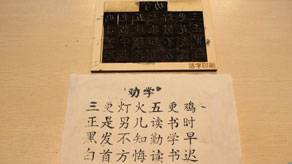 活字印刷
劝学
三更灯火五更鸡
正是男儿读书时
黑发不知勤学早
白首方悔读书迟